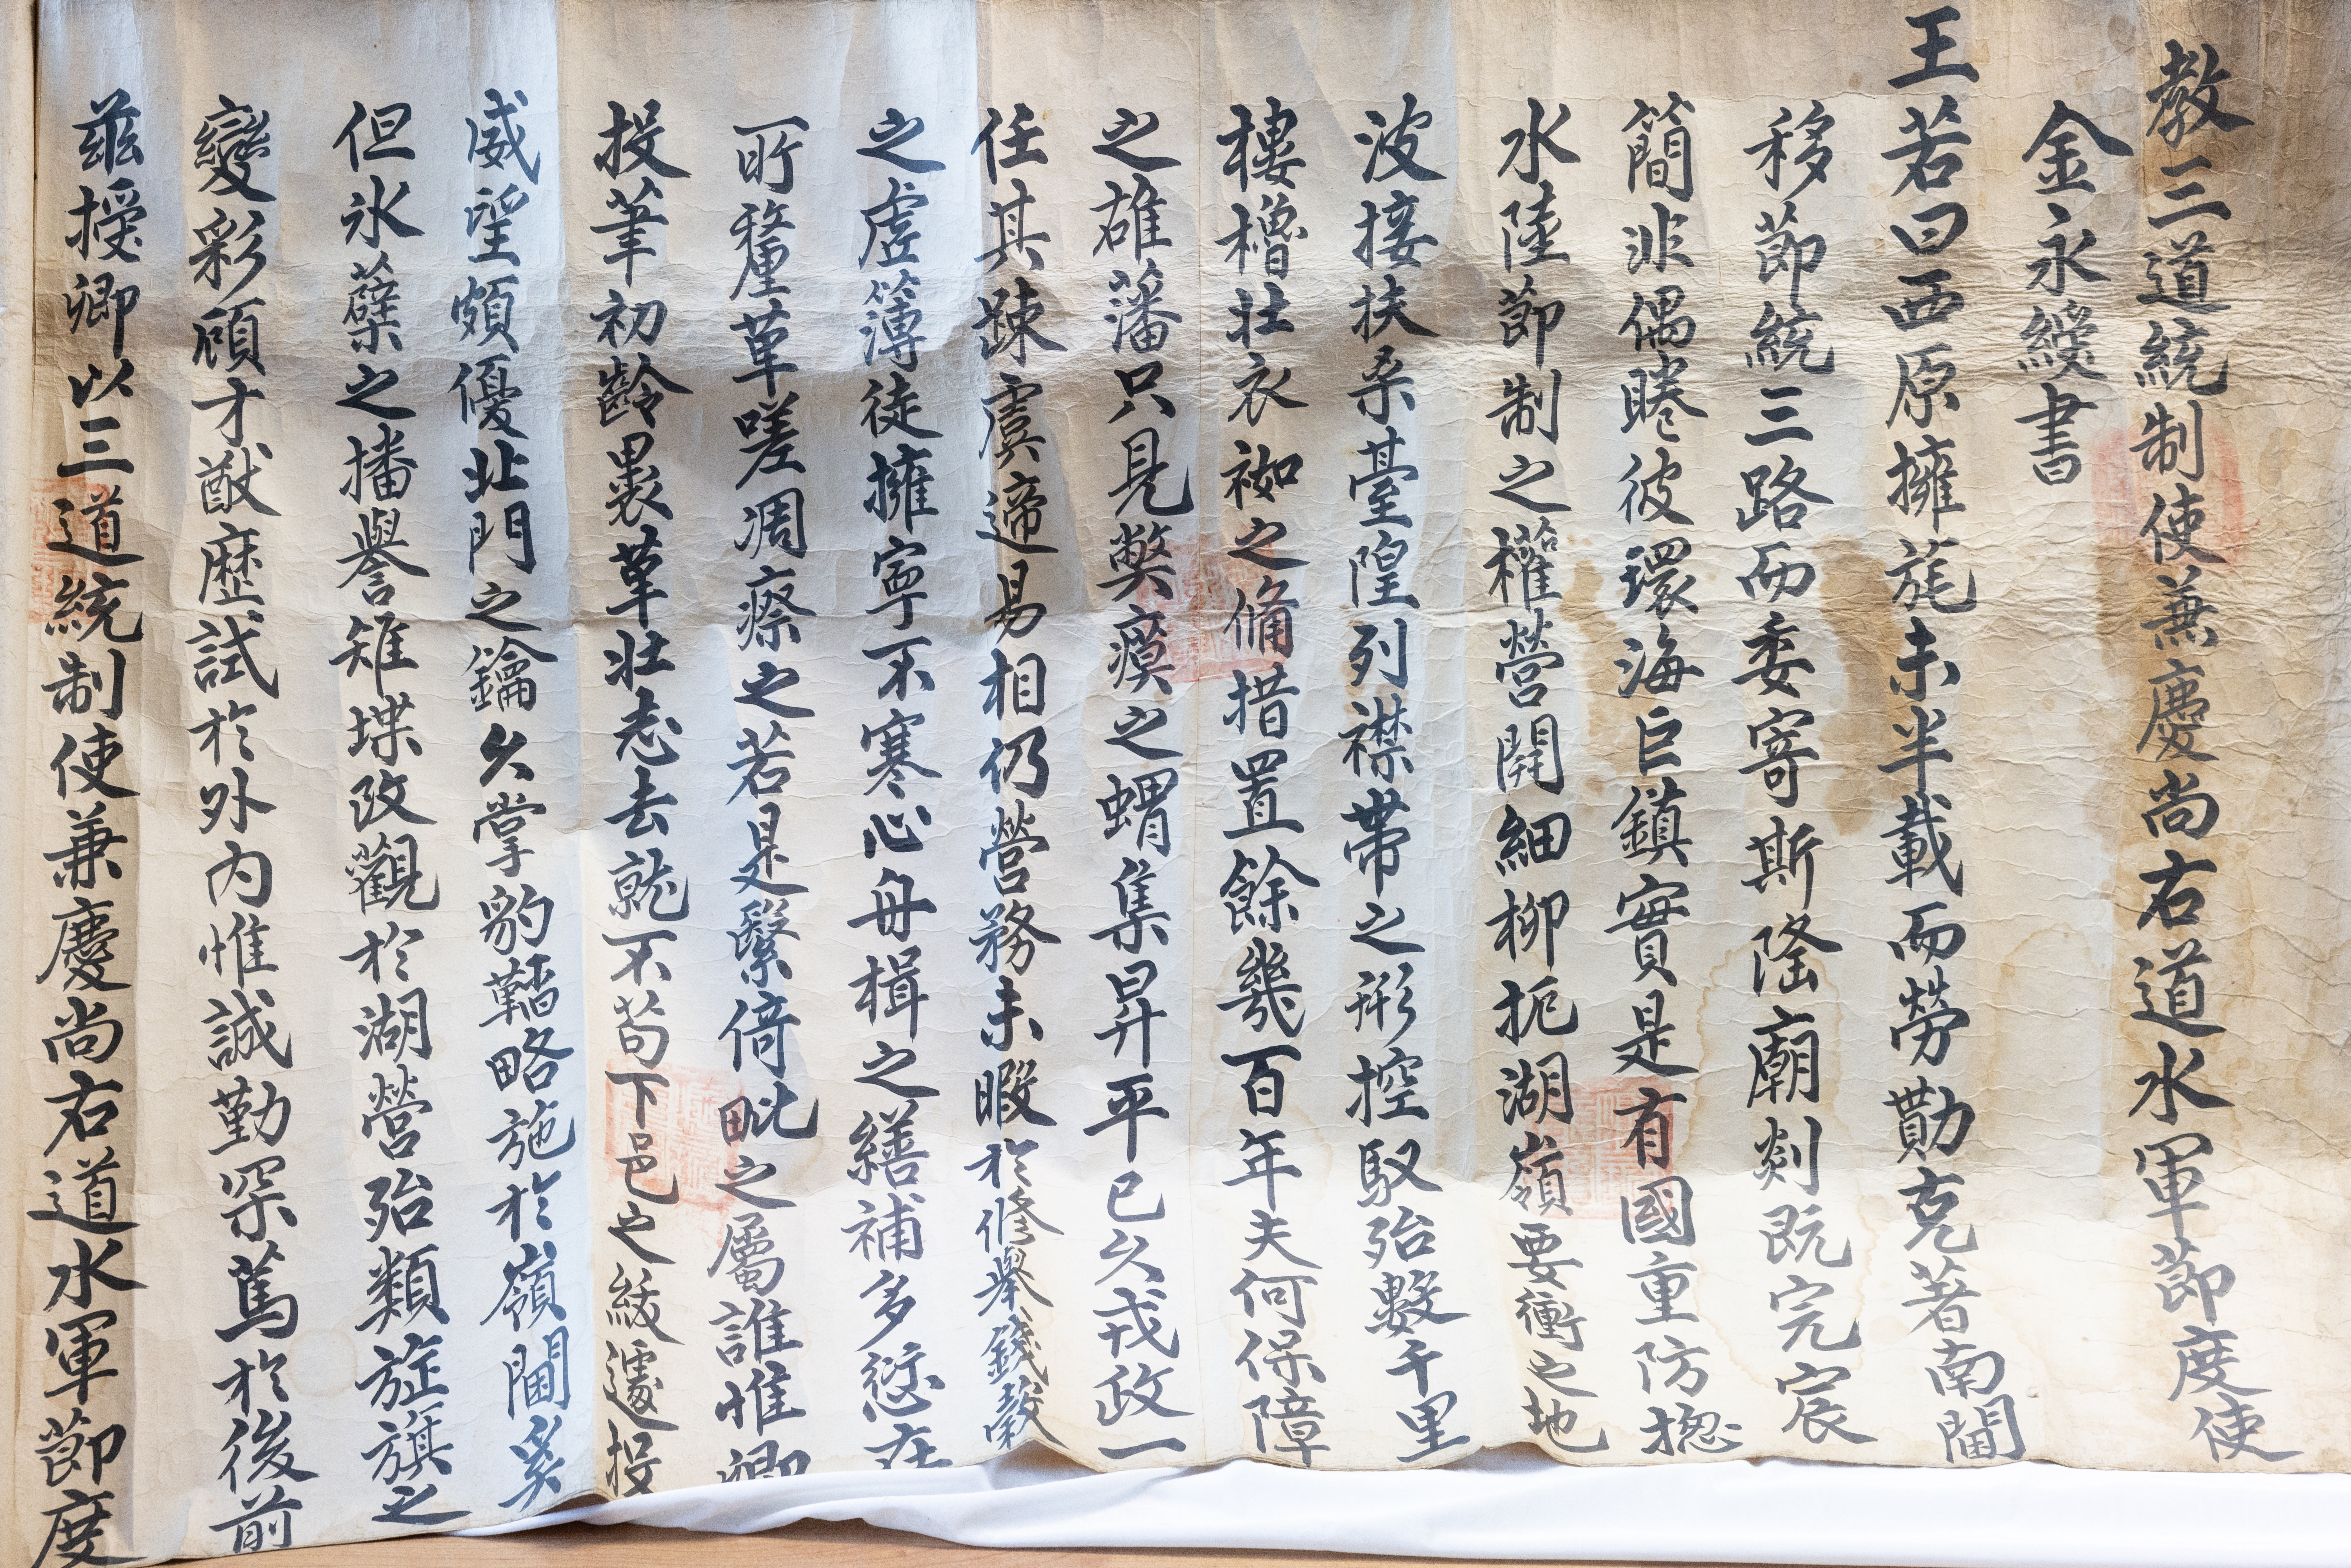 教三道統制使兼慶尚右道水軍節度使
金永綬書
王若曰西原擁旄未半載而勞勩克著南閫
移節統三路而委寄斯隆廟剡旣完宸
簡非偶睠彼環海巨鎭實是有國重防摠
水陸節制之權營開細柳扼湖嶺要衝之地
波接扶桑臺隍列襟帶之形控馭殆數千里
樓櫓壯衣袽之備措置餘幾百年夫何保障
之雄藩只見弊瘼之蝟集昇平已久戎政一
任其踈虞遞易相仍營務未暇於修擧錢穀
之虛簿徒擁寧不寒心舟楫之繕補多愆在
所釐革嗟凋瘵之若是緊倚毗之屬誰惟卿
投筆初齡裹革壯志去就不苟下邑之綏遽投
威望頗優北門之鑰久掌豹韜略施於嶺閫奚
但氷蘗之播譽雉堞改觀於湖營殆類旌旗之
變彩顧才猷歷試於外內惟誠勤采篤於後前
玆授卿以三道統制使兼慶尚右道水軍節度